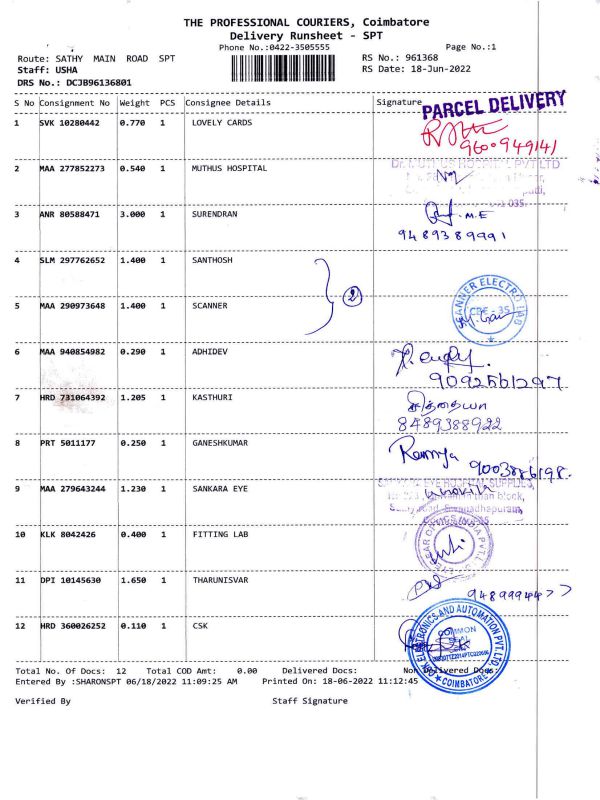 THE PROFESSIONAL COURIERS, Coimbatore
Delivery Runsheet - SPT
Phone No.:0422-3505555 Page No.:1
Route: SATHY MAIN ROAD SPT RS No.: 961368
Staff: USHA RS Date: 18-Jun-2022
DRS No.: DCJB96136801
S No Consignment No Weight PCS Consignee Details Signature
PARCEL DELIVERY
1 SVK 10280442 0.770 1 LOVELY CARDS
9600949141
2 MAA 277852273 0.540 1 MUTHUS HOSPITAL Dr. MUTHUS HOSPITAL PVT LTD
3 ANR 80588471 3.000 1 SURENDRAN M.E
9489389991
4 SLM 297762652 1.400 1 SANTHOSH
2
5 MAA 290973648 1.400 1 SCANNER SCANNER ELECTRO LAB CBE - 35
6 MAA 940854982 0.290 1 ADHIDEV
9092561297
7 HRD 731064392 1.205 1 KASTHURI
8489388922
8 PRT 5011177 0.250 1 GANESHKUMAR Ramya 9003886198.
9 MAA 279643244 1.230 1 SANKARA EYE EYE HOSPITAL SUPPLIES,
block,
10 KLK 8042426 0.400 1 FITTING LAB
11 DPI 10145630 1.650 1 THARUNISVAR
9489994477
12 HRD 360026252 0.110 1 CSK ELECTRONICS AND AUTOMATION PVT. LTD. COMMON SEAL COIMBATORE
Total No. Of Docs: 12 Total COD Amt: 0.00 Delivered Docs: Non Delivered Docs:
Entered By :SHARONSPT 06/18/2022 11:09:25 AM Printed On: 18-06-2022 11:12:45
Verified By Staff Signature